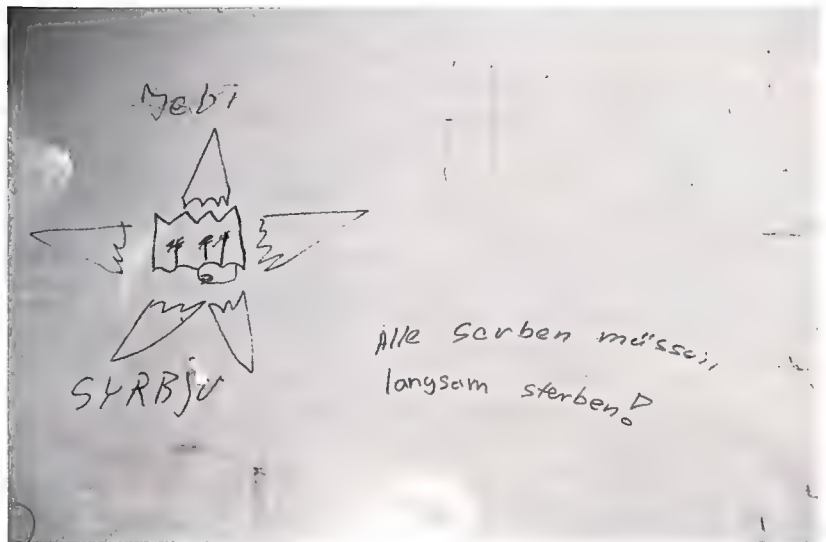 Jebi
SYRBjU
Alle Serben müssen
langsam sterben!